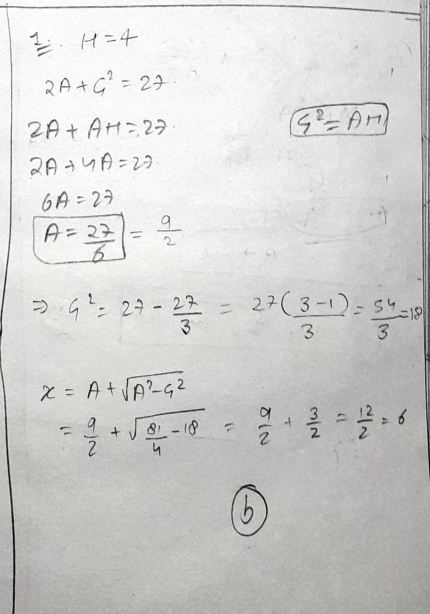 1. H = 4
2A + G² = 27
2A + AH = 27.
G² = AH
2A + 4A = 27
6A = 27
A = 27/6 = 9/2
⇒ G² = 27 - 27/3 = 27(3-1/3) = 54/3 = 18
x = A + √A²-G²
= 9/2 + √81/4 - 18 = 9/2 + 3/2 = 12/2 = 6
b